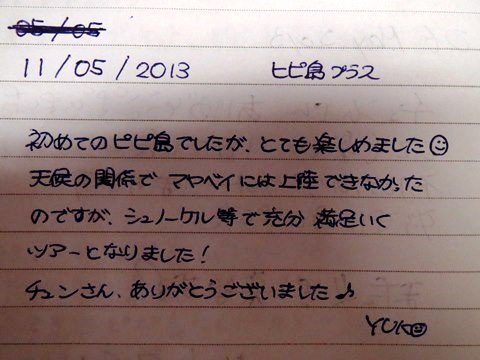 05/05
11/05/2013 ピピ島プラス
初めてのピピ島でしたが、とても楽しめました☺
天候の関係で マヤベイには上陸できなかった
のですが、シュノーケル等で充分 満足いく
ツアーとなりました!
チュンさん、ありがとうございました♪
YUKO